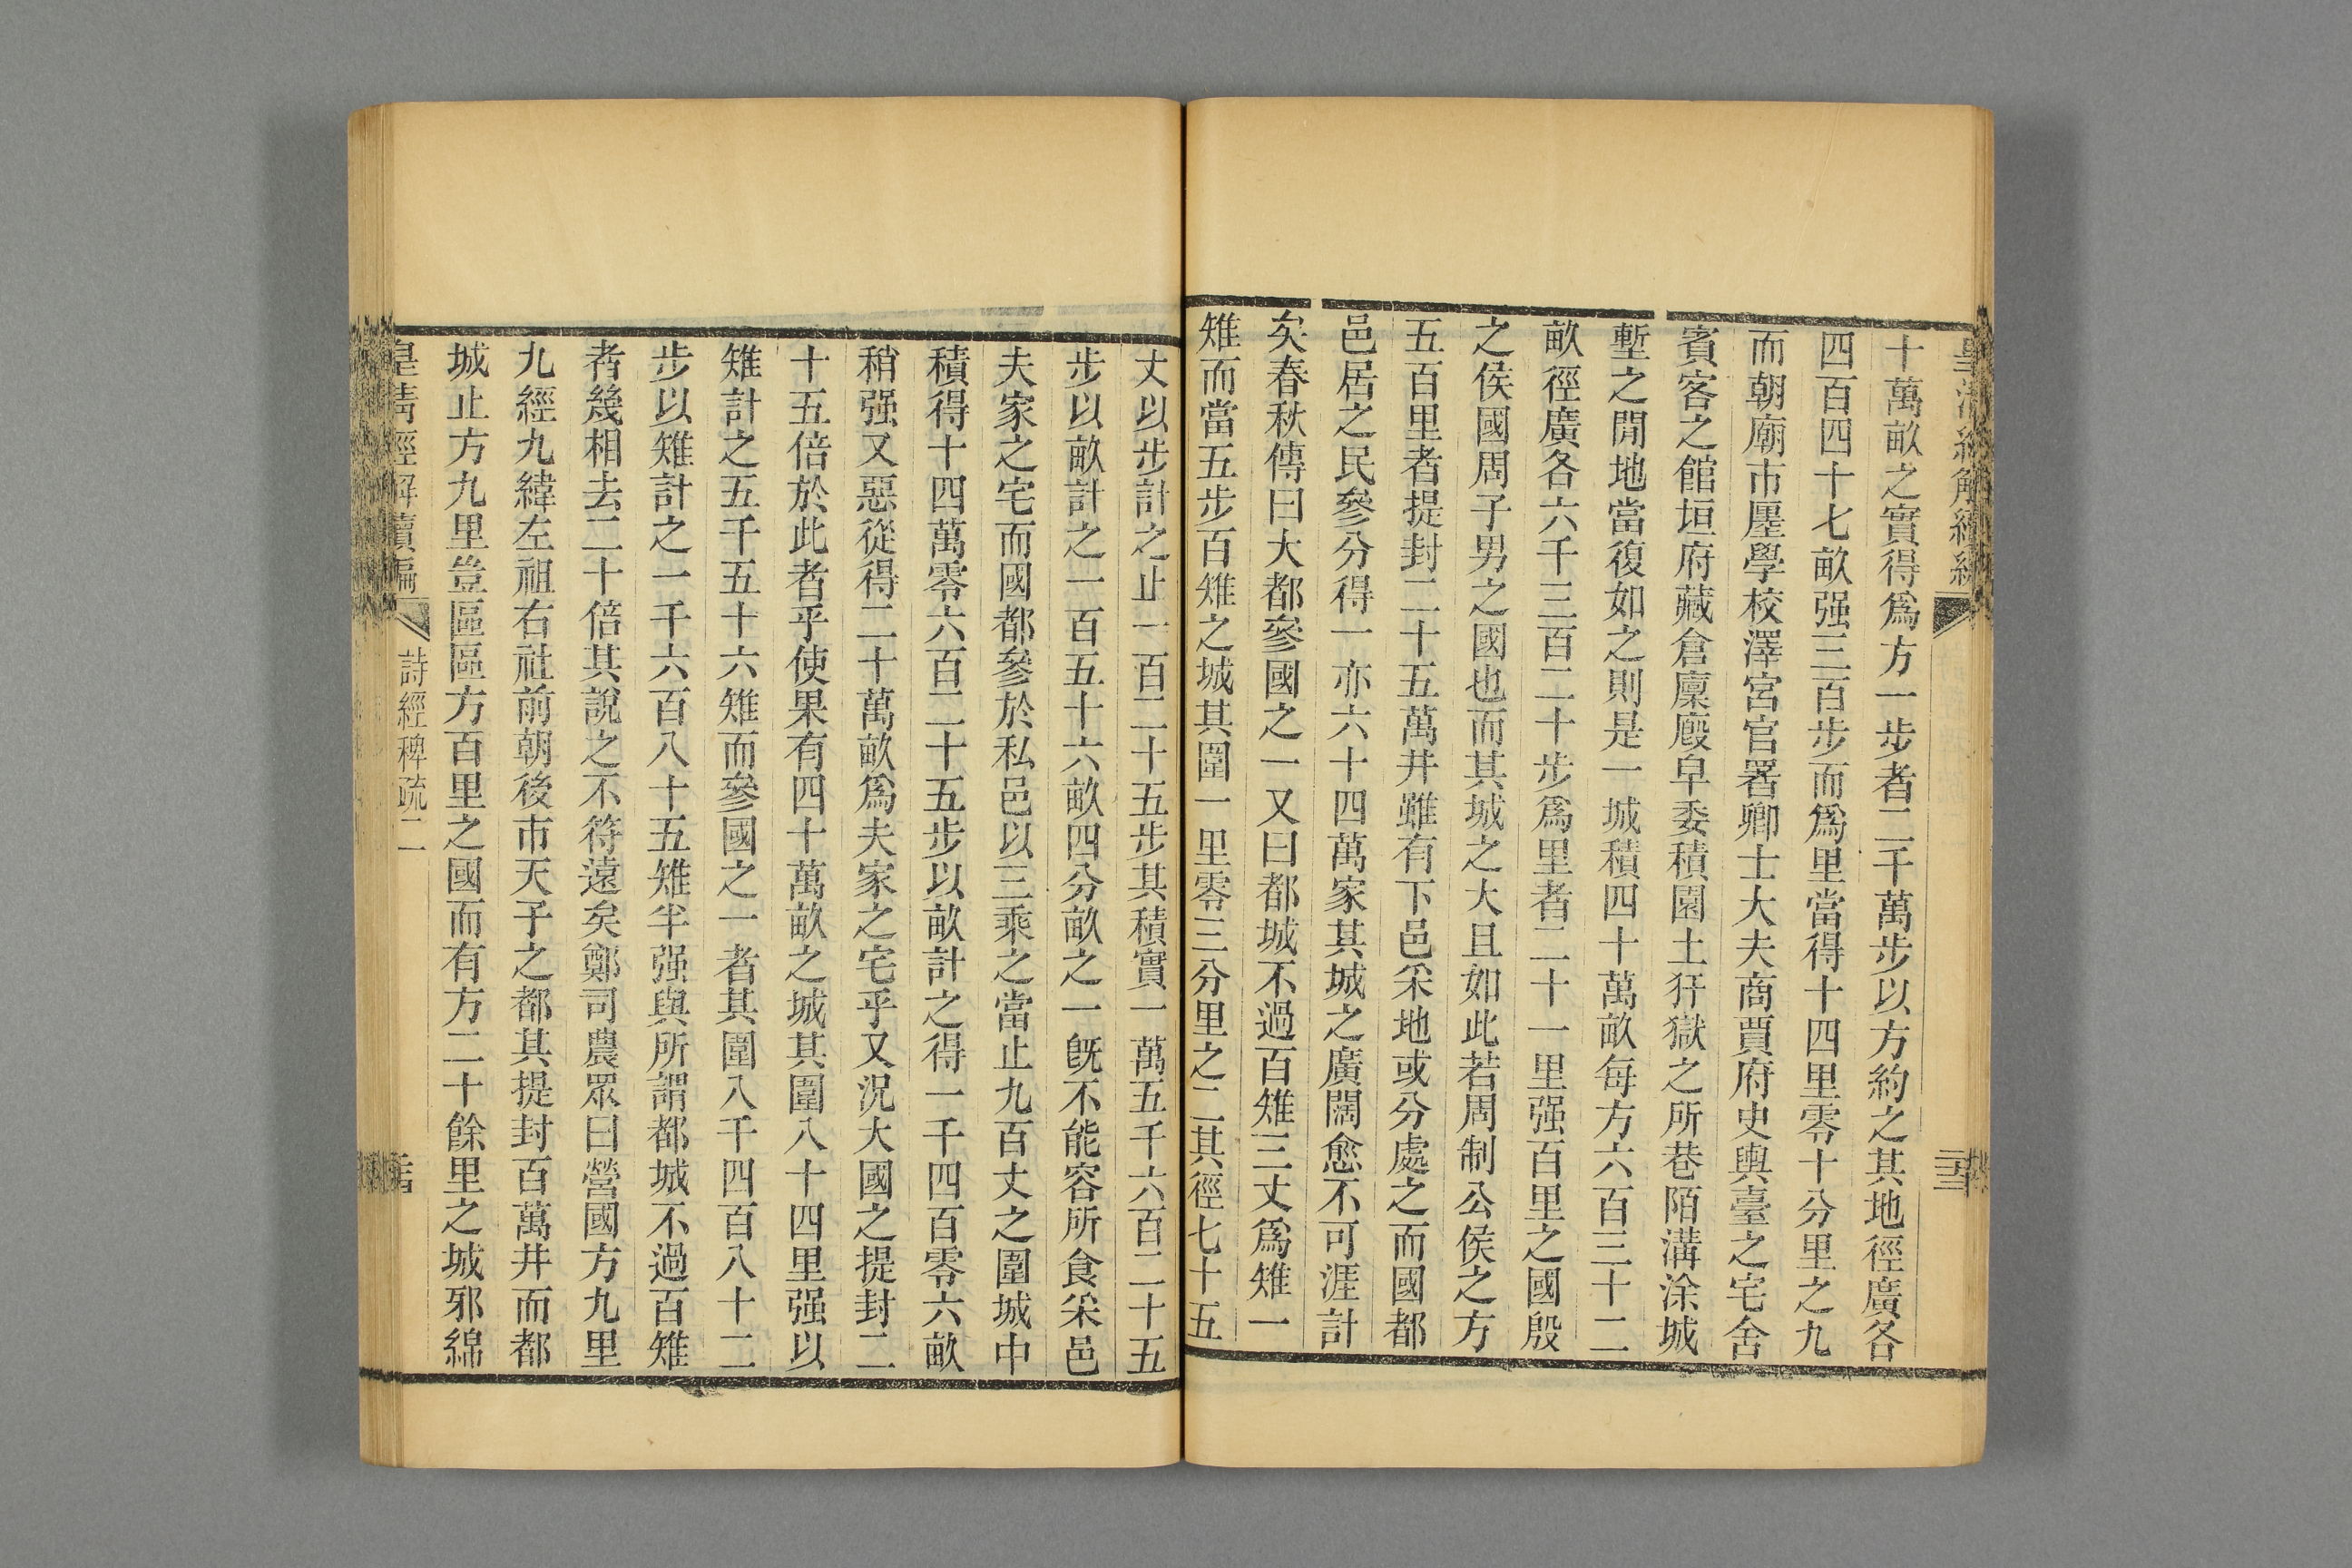 十萬畝之實得爲方一步者二千萬步以方約之其地徑廣各
四百四十七畝强三百步而爲里當得十四里零十分里之九
而朝廟市廛學校澤宮官署卿士大夫商賈府史輿臺之宅舍
賓客之館垣府藏倉廩廄皁委積園土犴獄之所巷陌溝涂城
塹之閒地當復如之則是一城積四十萬畝每方六百三十二
畝徑廣各六千三百二十步爲里者二十一里强百里之國殷
之侯國周子男之國也而其城之大且如此若周制公侯之方
五百里者提封二十五萬井雖有下邑采地或分處之而國都
邑居之民參分得一亦六十四萬家其城之廣闊愈不可涯計
矣春秋傳曰大都參國之一又曰都城不過百雉三丈爲雉一
雉而當五步百雉之城其圍一里零三分里之二其徑七十五
丈以步計之止一百二十五步其積實一萬五千六百二十五
步以畝計之一百五十六畝四分畝之一旣不能容所食采邑
夫家之宅而國都參於私邑以三乘之當止九百丈之圍城中
積得十四萬零六百二十五步以畝計之得一千四百零六畝
稍强又惡從得二十萬畝爲夫家之宅乎又況大國之提封二
十五倍於此者乎使果有四十萬畝之城其圍八十四里强以
雉計之五千五十六雉而參國之一者其圍八千四百八十二
步以雉計之一千六百八十五雉半强與所謂都城不過百雉
者幾相去二十倍其說之不符遠矣鄭司農眾曰營國方九里
九經九緯左祖右社前朝後市天子之都其提封百萬井而都
城止方九里豈區區方百里之國而有方二十餘里之城邪綿
皇清經解續編
詩經稗疏二